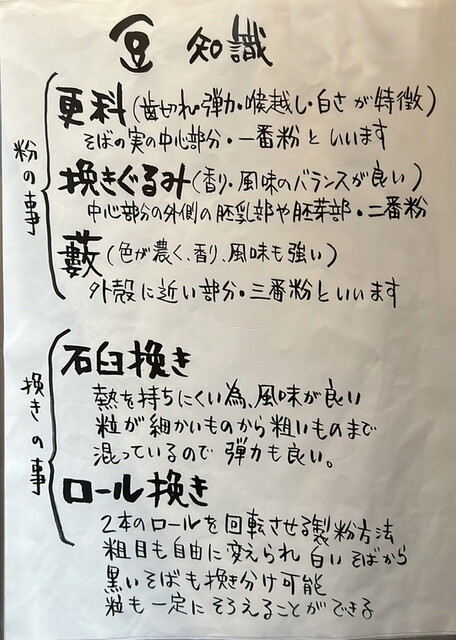 豆知識
粉の事
更科(歯切れ・弾力・喉越し・白さが特徴)
そばの実の中心部分・一番粉といいます
挽きぐるみ(香り・風味のバランスが良い)
中心部分の外側の胚乳部や胚芽部・二番粉
藪(色が濃く、香り、風味も強い)
外殻に近い部分・三番粉といいます
挽きの事
石臼挽き
熱を持ちにくい為、風味が良い
粒が細かいものから粗いものまで
混っているので弾力も良い。
ロール挽き
2本のロールを回転させる製粉方法
粗目も自由に変えられ白いそばから
黒いそばも挽き分け可能
粒も一定にそろえることができる